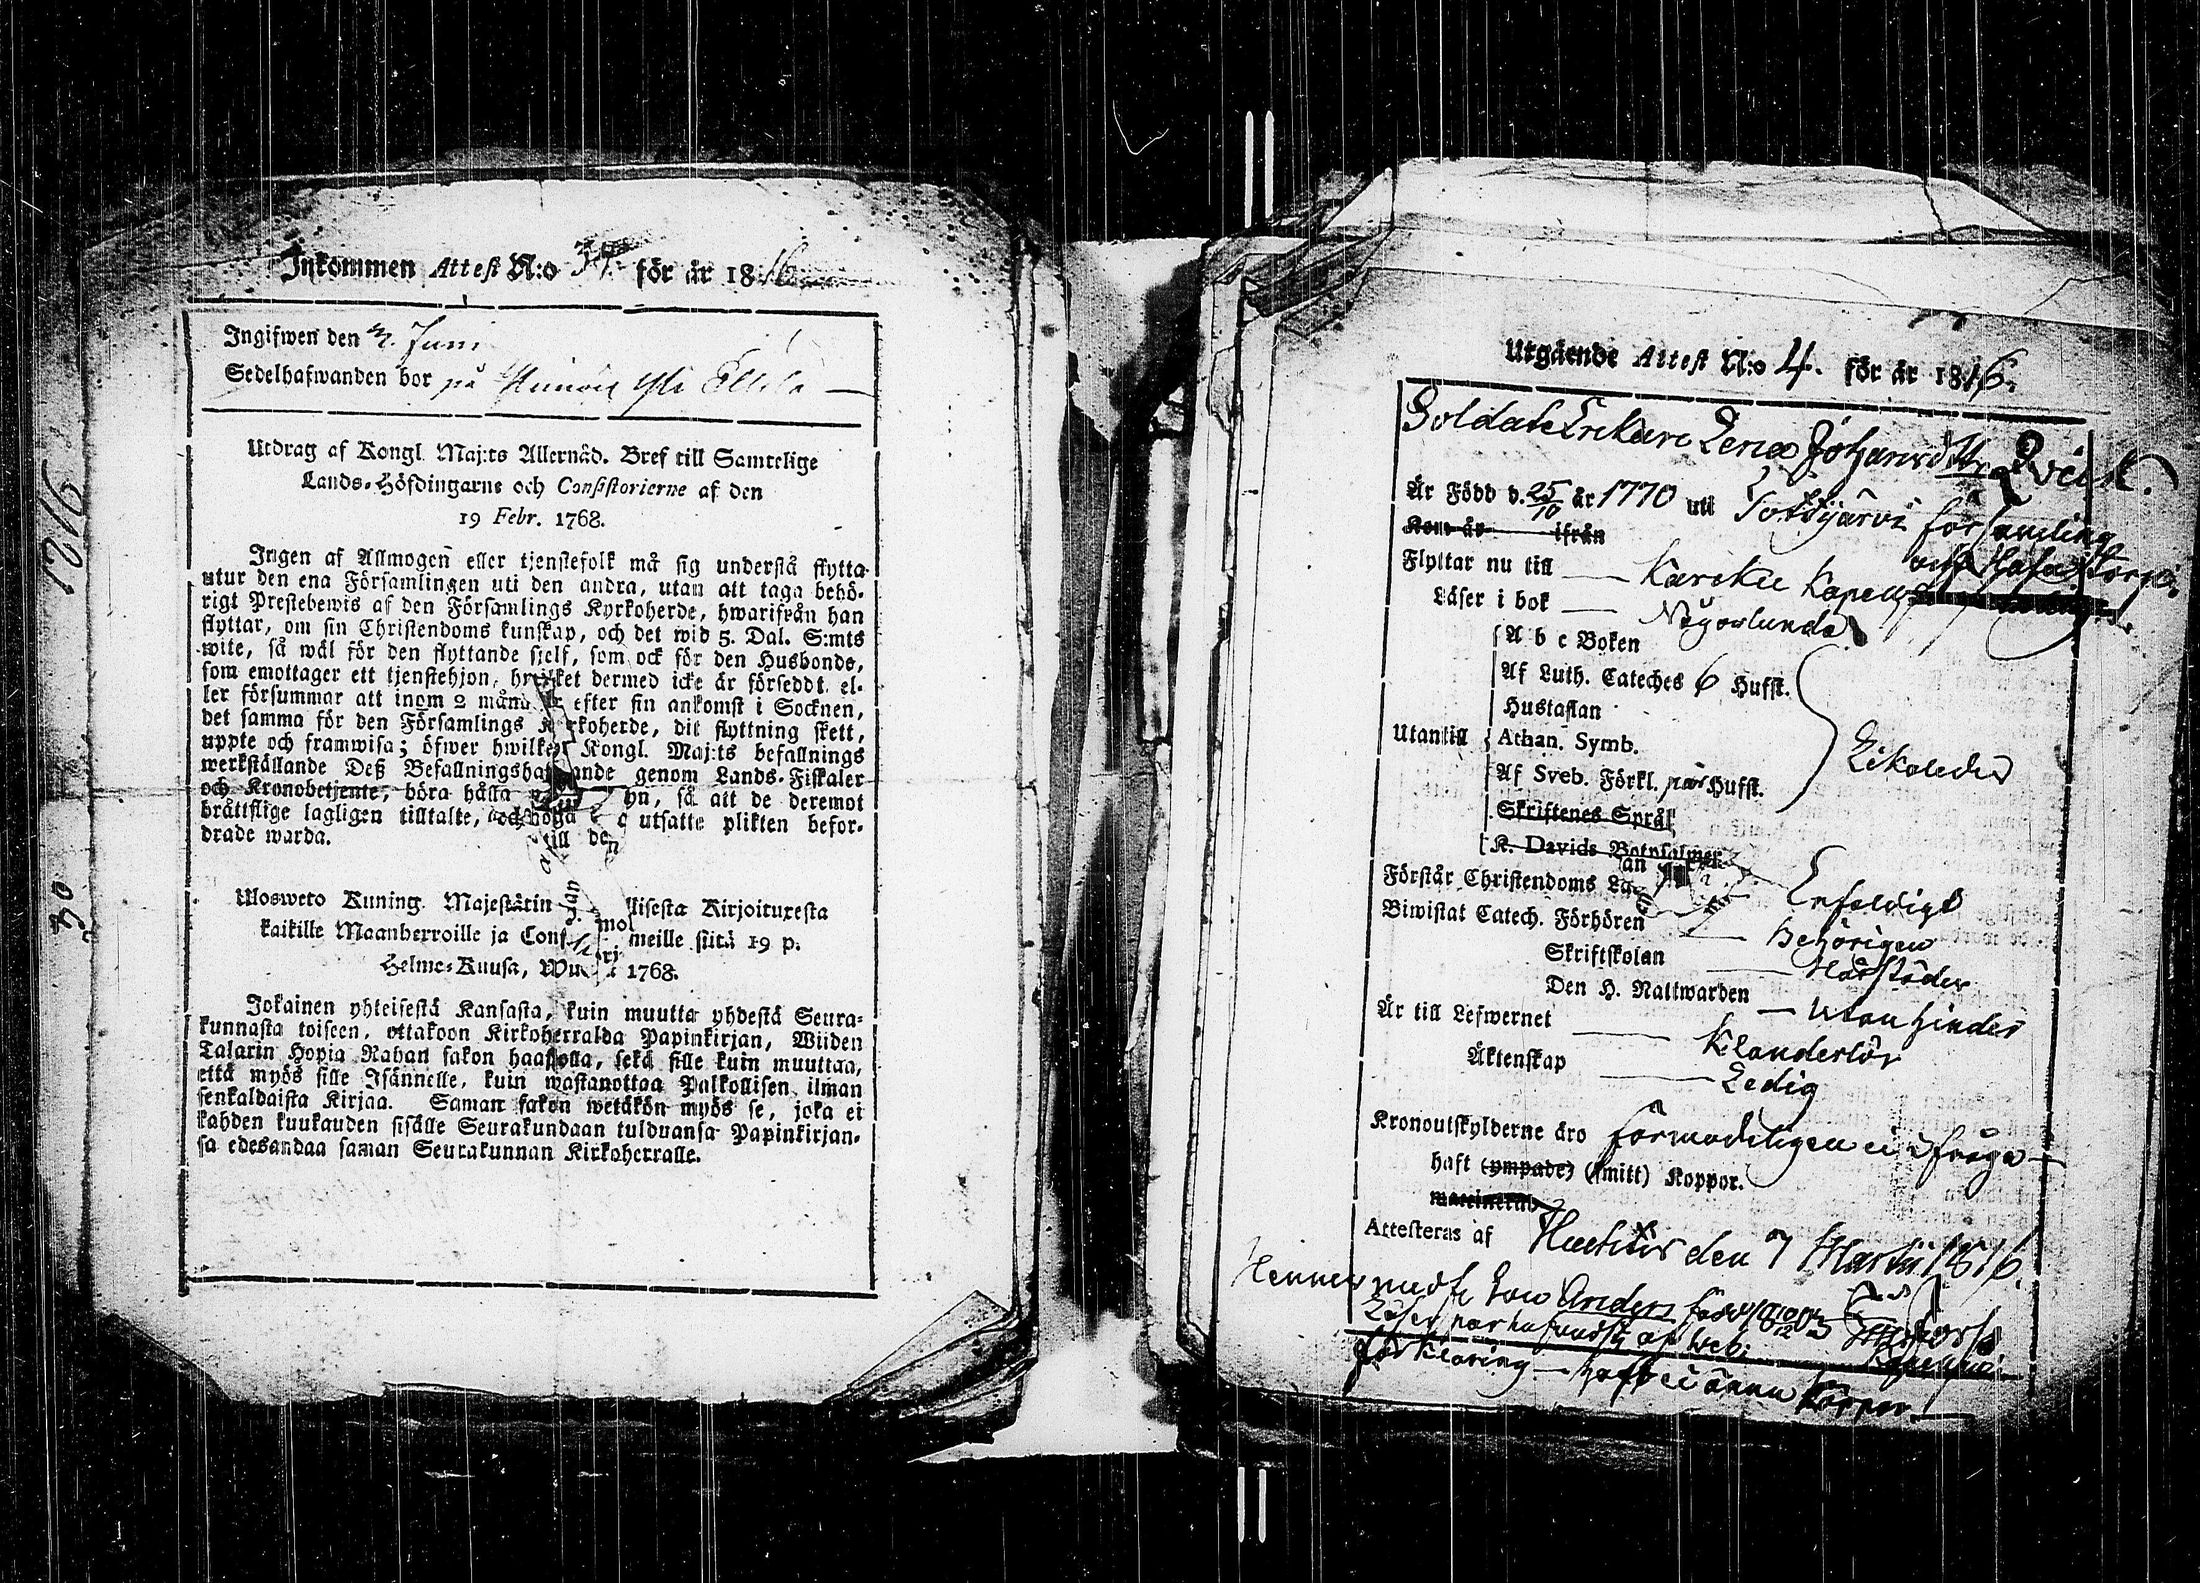 Inkommen Attest N:o 34. för år 1816
Ingifwen den 3. Juni
Sedelhafwanden bor på
1816
30
Utdrag af Kongl. Maj:ts Allernåd. Bref till Samtelige
Lands-Höfdingarne och Consistorierne af den
19 Febr. 1768.
Ingen af Allmogen eller tjenstefolk må sig understå flytta
utur den ena Församlingen uti den andra, utan att taga behö-
rigt Prestebewis af den Församlings Kyrkoherde, hwarifrån han
flyttar, om sin Christendoms kunskap, och det wid 5. Dal. S:mts
wite, så wäl för den flyttande sjelf, som ock för den Husbonde,
som emottager ett tjenstehjon, hwilket dermed icke är förseddt el-
ler försummar att inom 2 måna efter sin ankomst i Socknen,
det samma för den Församlings rkoherde, dit flyttning skett,
uppte och framwisa; öfwer hwilket Kongl. Maj:ts befallnings
werkställande Deß Befallningsha ande genom Lands-Fiskaler
och Kronobetjente, böra hålla yn, så att de deremot
bråttslige lagligen tilltalte, och utsatte plikten befor-
drade warda.
Ulosweto Kuning. Majestätin llisesta Kirjoituxesta
kaikille Maanherroille ja Cons meille siitä 19 p.
Helme-Kuusa, Wu 1768.
Jokainen yhteisestä Kansasta, kuin muutta yhdestä Seura-
kunnasta toiseen, ottakoon Kirkoherralda Papinkirjan, Wiiden
Talarin Hopia Rahan sakon haastolla, sekä sille kuin muuttaa,
että myös sille Isännelle, kuin wastanottaa Palkollisen ilman
senkaldaista Kirjaa. Saman sakon wetäkön myös se, joka ei
kahden kuukauden sisälle Seurakundaan tulduansa Papinkirjan-
sa edesandaa saman Seurakunnan Kirkoherralle.
Utgående Attest N:o 4. för år 1816.
Soldate Enkan Lena Johansdtr Qvick.
Är Född d. 25/10 år 1770 uti Totkijärvi församling
Kom år ifrån
Flyttar nu till Karkku Kapell
Läser i bok Någorlunda
A b c Boken
Af Luth. Cateches 6 Hufst.
Hustaflan
Utantill Athan. Symb. Likaledes
Af Sveb. Förkl. par Hufst.
Skriftenes Språk
K. Davids Botpsalmer
Förstår Christendoms Lä Enfaldigt
Biwistat Catech. Förhören Behörigen
Skriftskolan Härstädes
Den H. Nattwarden Utan hinder
Är till Lefwernet Klanderlös
Äktenskap Ledig
Kronoutskylderne äro förmodeligen ei i fråga
haft (ympade) (smitt) Koppor.
vaccinerad
Attesteras af den 7 Martii 1816.
Hennes medf. Son Anders född 10/12 1803
Läser par hufvudst. af Sveb.
förklaring — haft ei ännu koppor